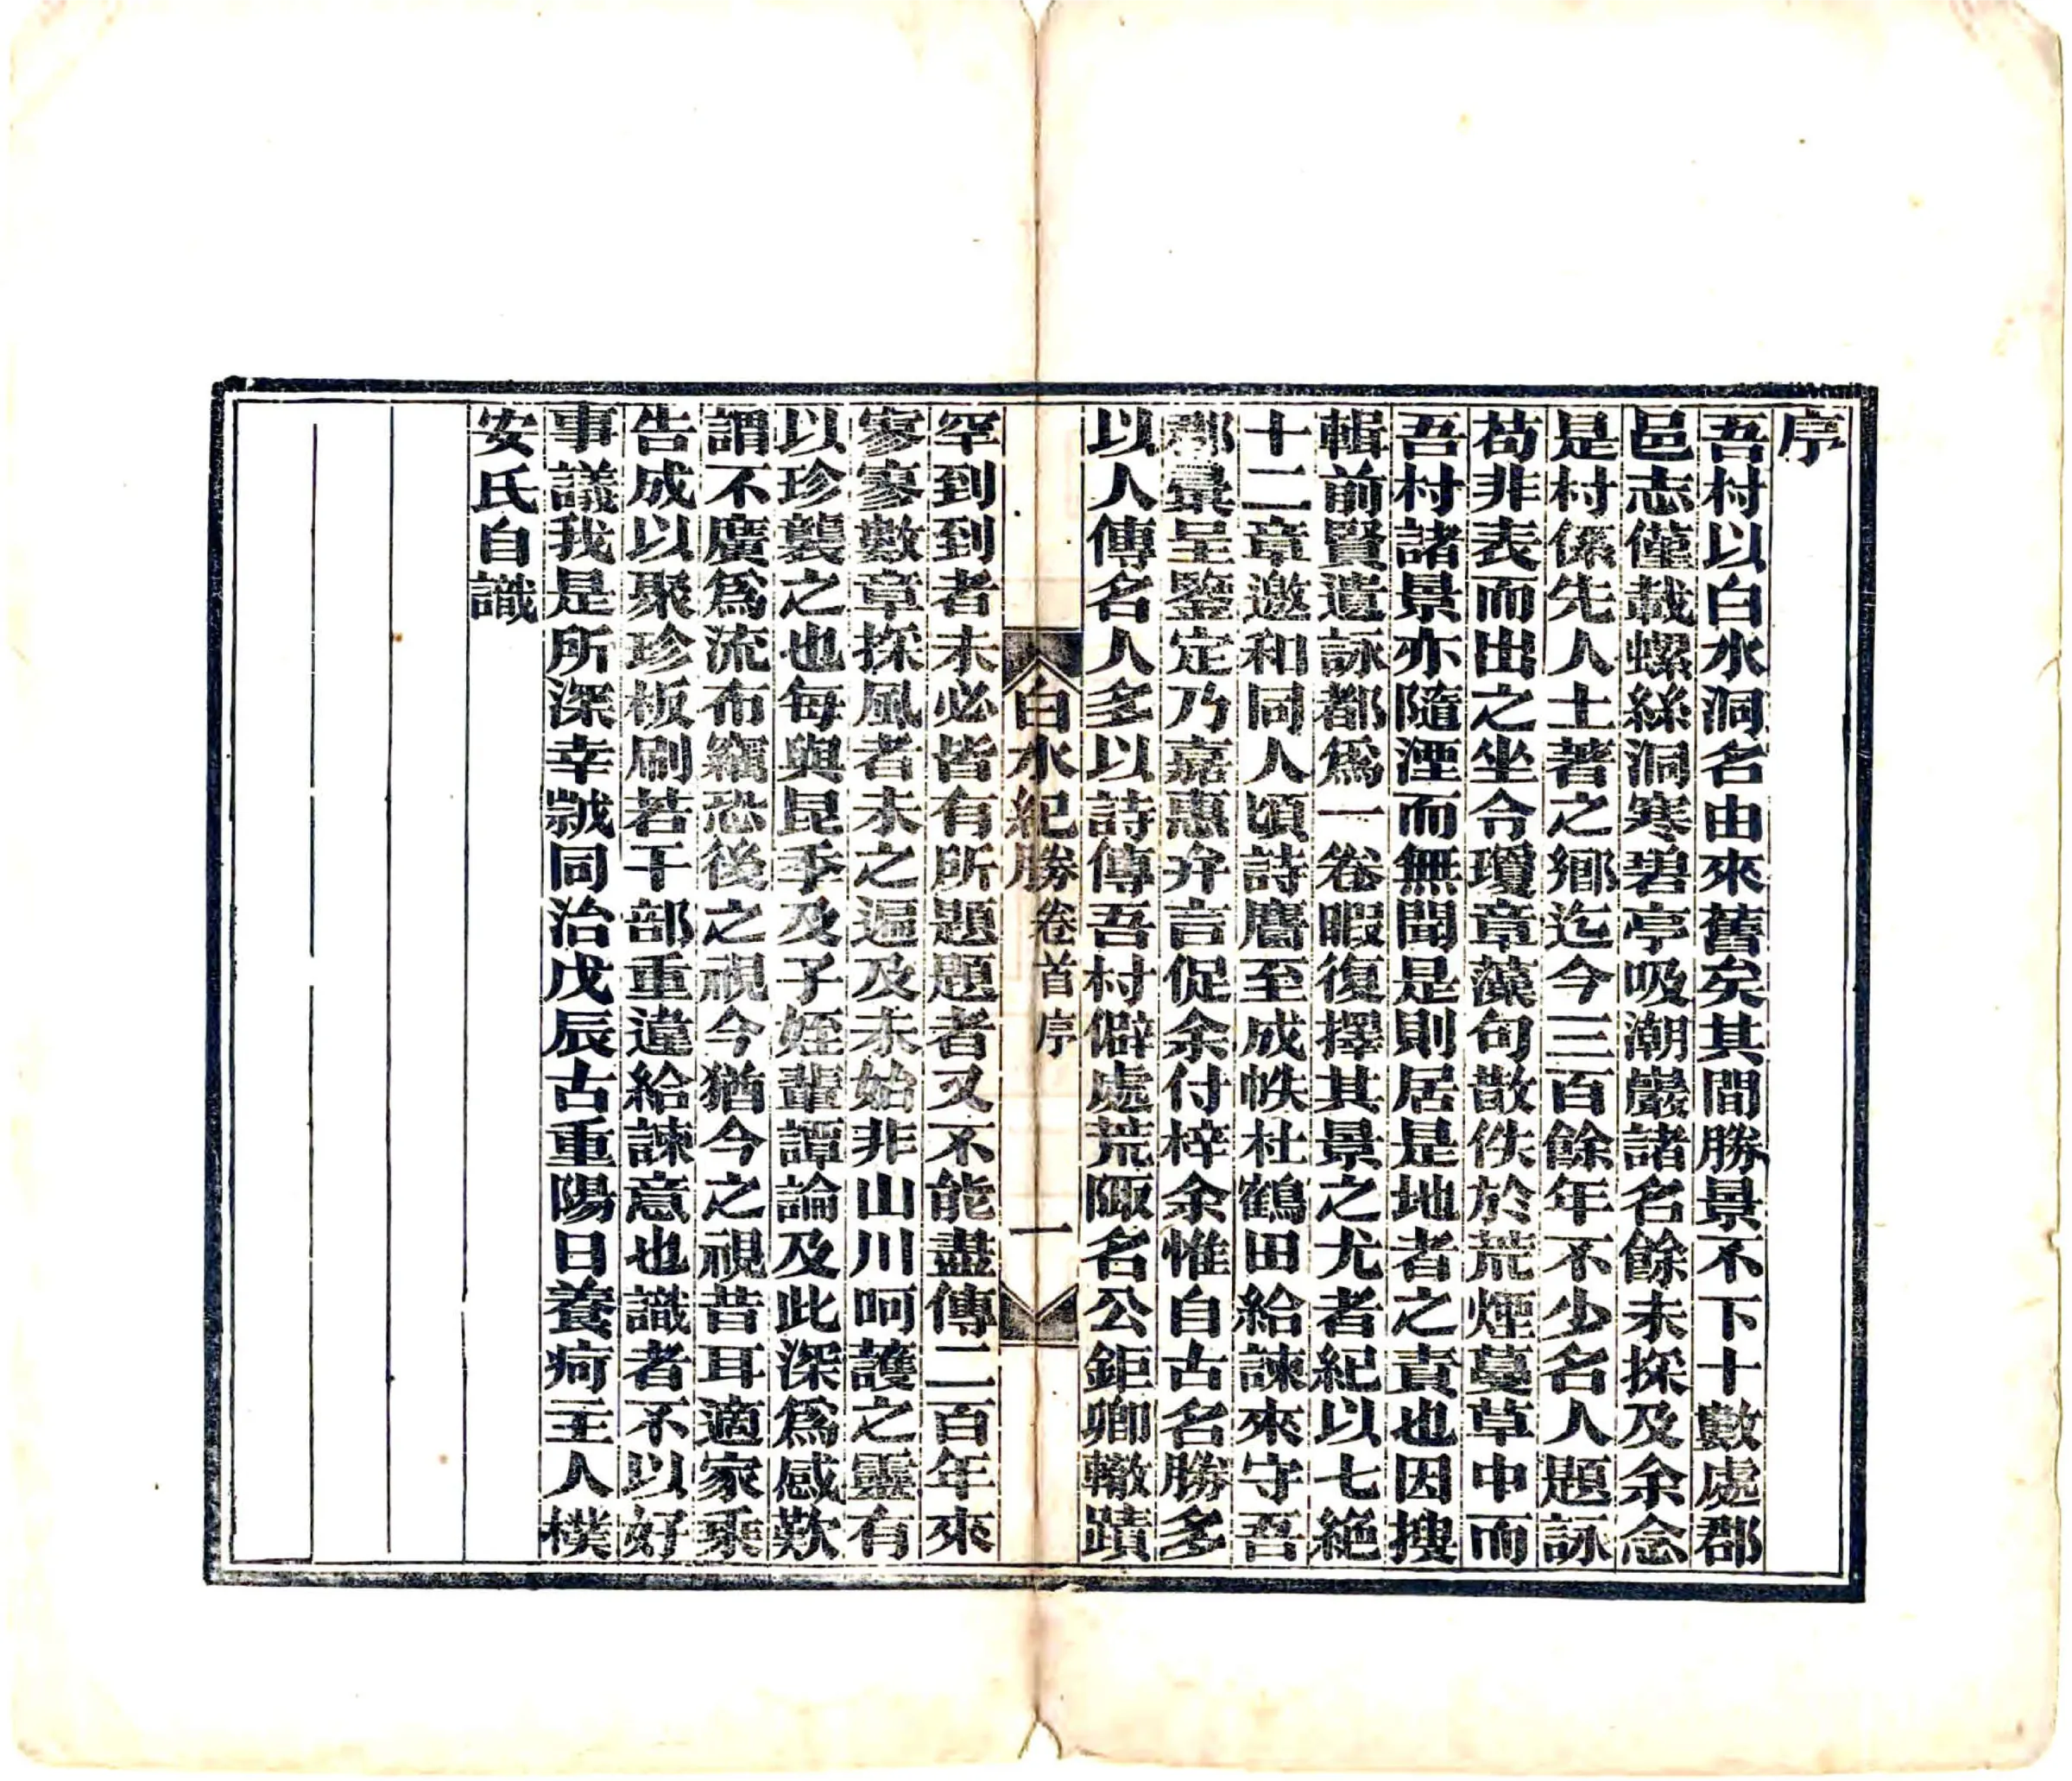 序
吾村以白水洞名由來舊矣其間勝景不下十數處郡
邑志僅載螺絲洞寒碧亭吸潮巖諸名餘未採及余念
是村係先人土著之鄉迄今三百餘年不少名人題詠
苟非表而出之坐令瓊章藻句散佚於荒煙蔓草中而
吾村諸景亦隨湮而無聞是則居是地者之責也因搜
輯前賢遺詠都爲一卷暇復擇其景之尤者紀以七絕
十二章邀和同人頃詩鷹至成帙杜鶴田給諫來守吾
郡彙呈鑒定乃嘉惠弁言促余付梓余惟自古名勝多
以人傳名人多以詩傳吾村僻處荒陬名公鉅卿轍蹟
白水紀勝卷首序 一
罕到到者未必皆有所題題者又不能盡傳二百年來
寥寥數章採風者未之遍及未始非山川呵護之靈有
以珍襲之也每與昆季及子姪輩譚論及此深爲感歎
謂不廣爲流布竊恐後之視今猶今之視昔耳適家乘
告成以聚珍板刷若干部重違給諫意也識者不以好
事議我是所深幸誠同治戊辰古重陽日養疴主人樸
安氏自識